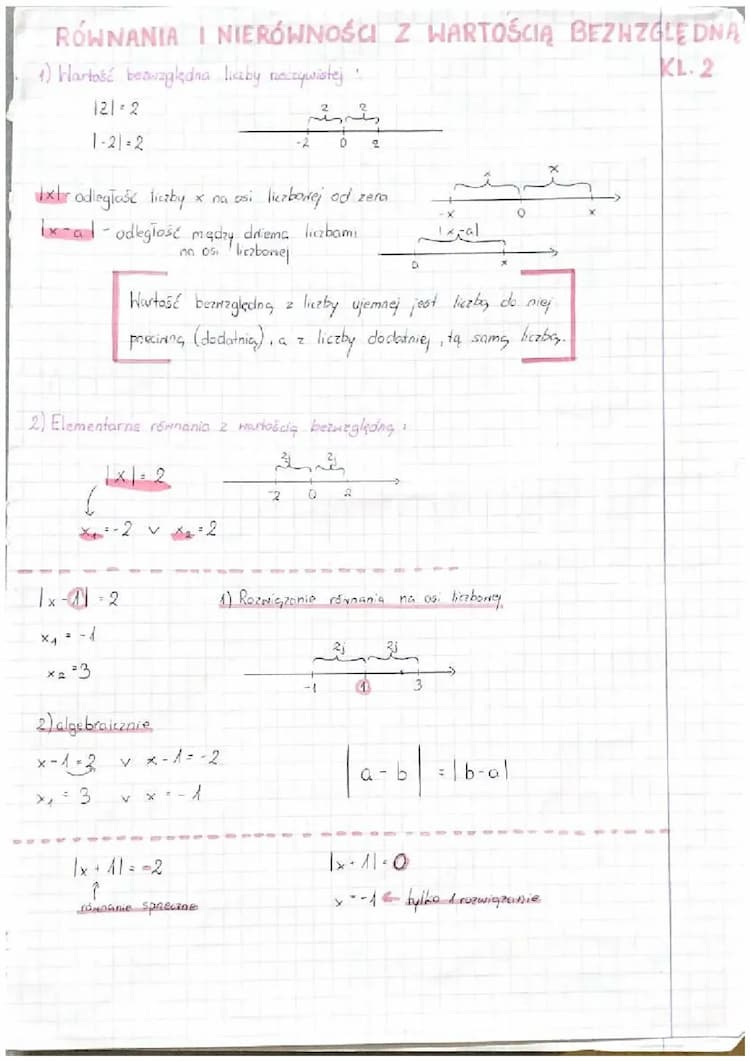 RÓWNANIA I NIERÓWNOŚCI Z WARTOŚCIĄ BEZWZGLĘDNĄ
KL. 2
1) Wartość bezwzględna liczby rzeczywistej :
|2| = 2
|-2| = 2
2 2
-2 0 2
|x| - odległość liczby x na osi liczbowej od zera
x x
-x 0 x
|x-a| - odległość między dwiema liczbami
na osi liczbowej
|x-a|
a x
Wartość bezwzględną z liczby ujemnej jest liczbą do niej
przeciwną (dodatnią), a z liczby dodatniej, tą samą liczbą.
2) Elementarne równania z wartością bezwzględną :
|x| = 2
2j 2j
-2 0 2
x₁ = -2 v x₂ = 2
|x - 1| = 2
1) Rozwiązanie równania na osi liczbowej
x₁ = -1
x₂ = 3
2j 2j
-1 1 3
2) algebraicznie
x - 1 = 2 v x - 1 = -2
x₁ = 3 v x = -1
|a - b| = |b - a|
|x + 1| = -2
równanie sprzeczne
|x + 1| = 0
x = -1 ← tylko 1 rozwiązanie